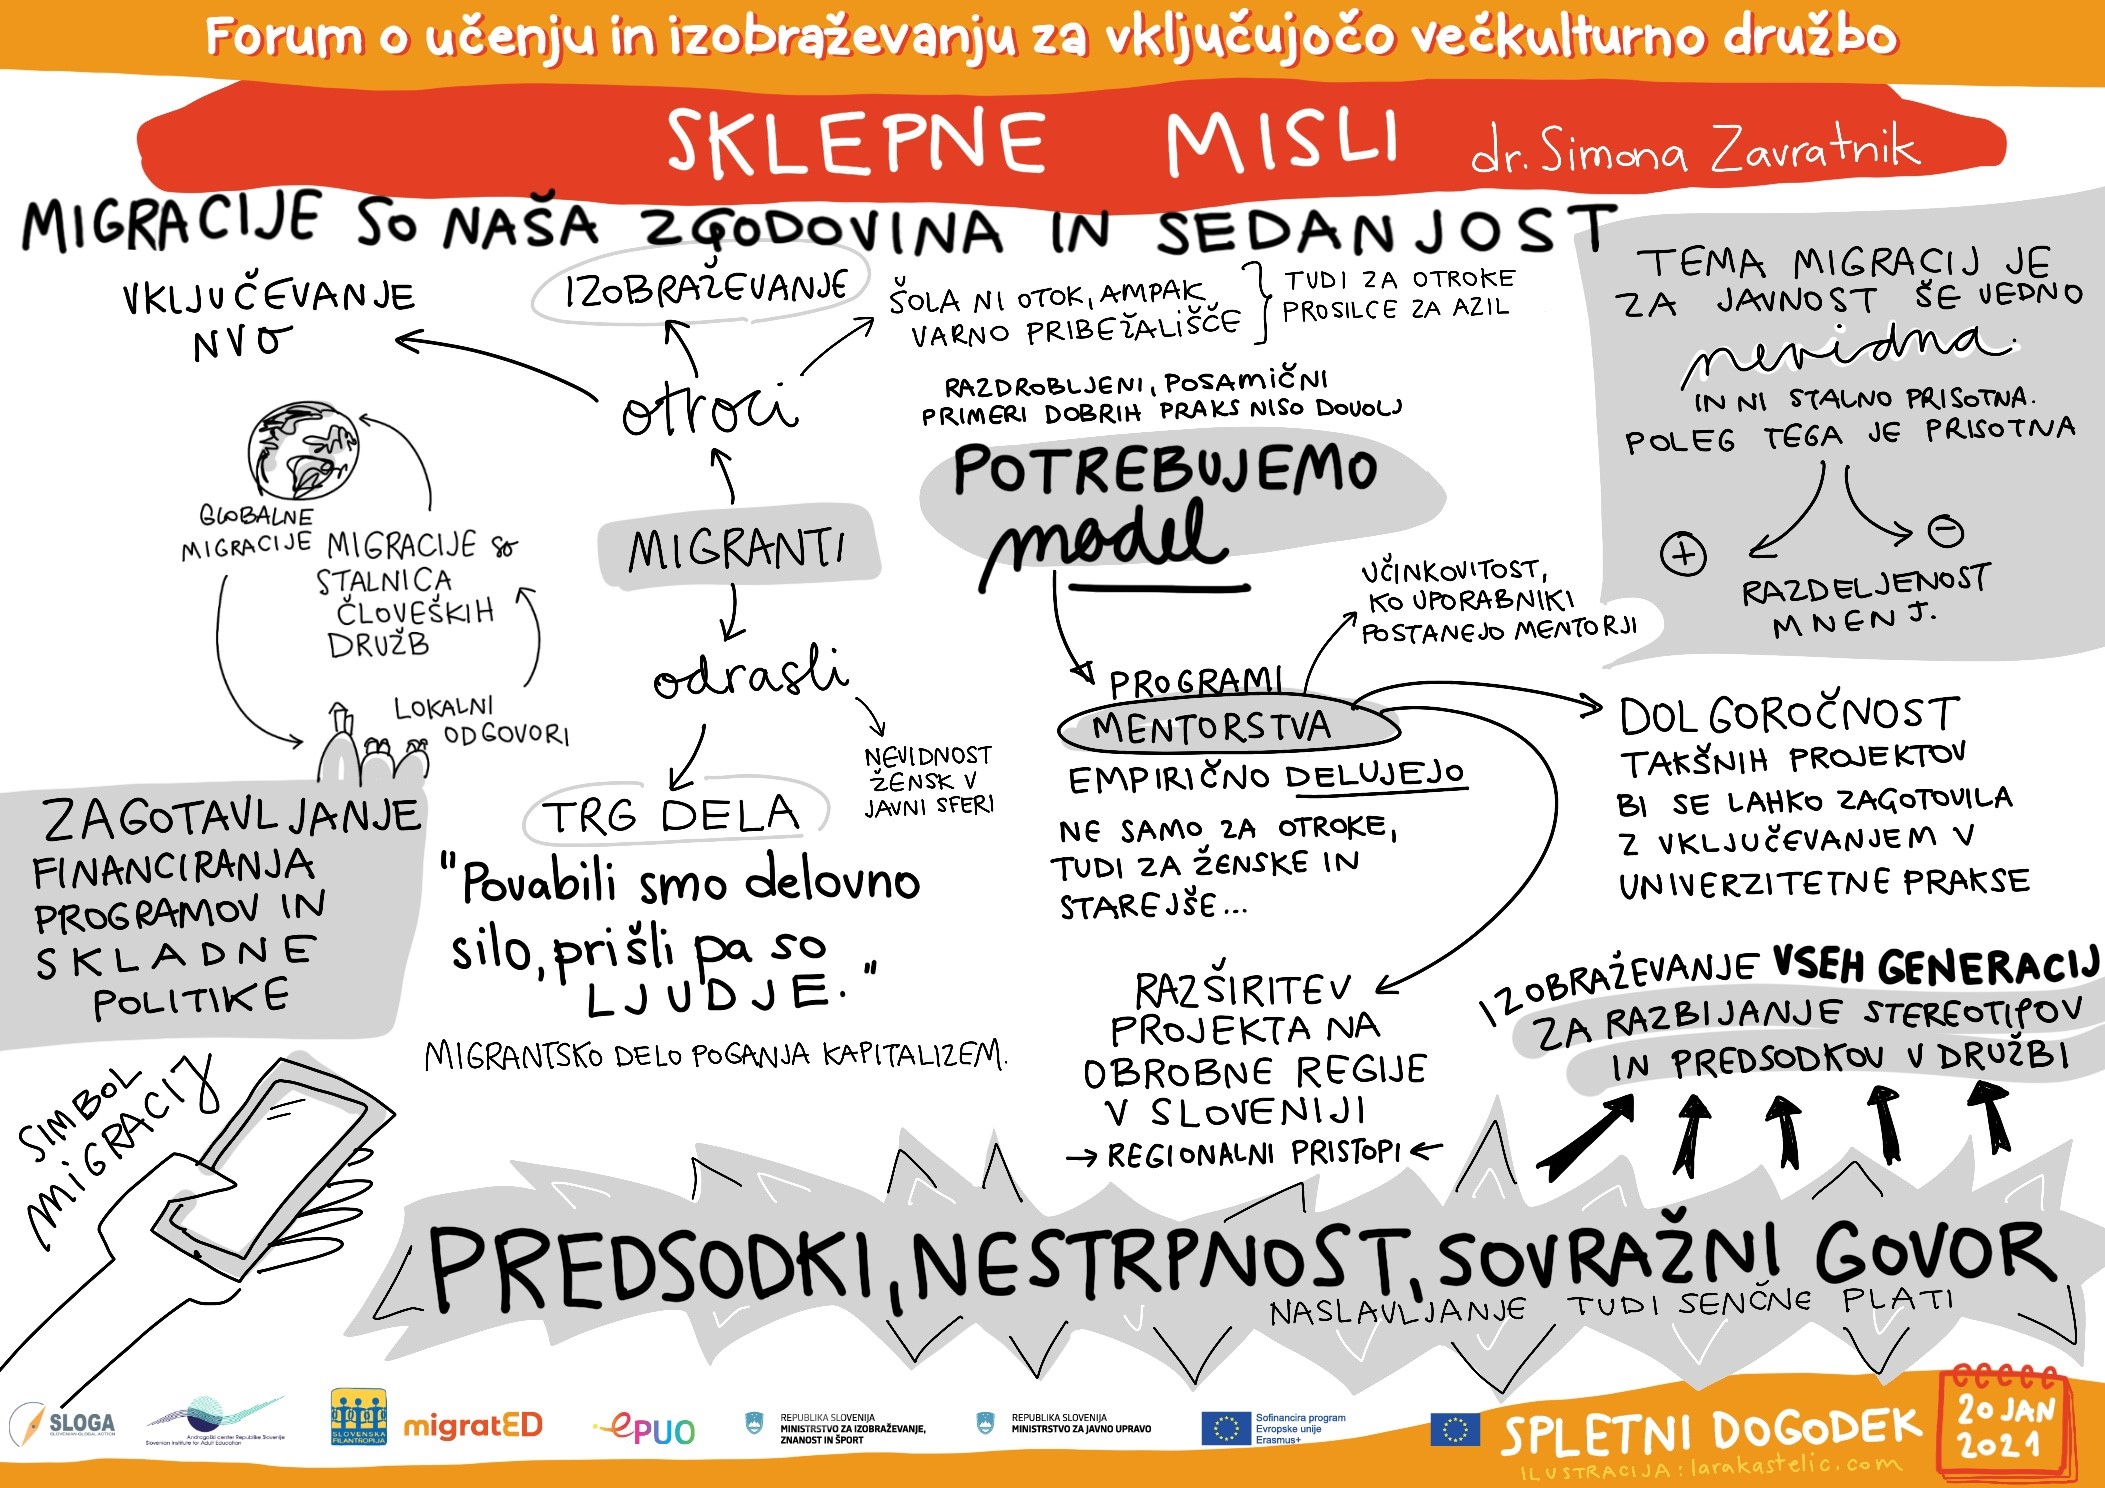 Forum o učenju in izobraževanju za vključujočo večkulturno družbo
SKLEPNE MISLI dr. Simona Zavratnik
MIGRACIJE SO NAŠA ZGODOVINA IN SEDANJOST
VKLJUČEVANJE
NVO
IZOBRAŽEVANJE
ŠOLA NI OTOK, AMPAK
VARNO PRIBEŽALIŠČE
TUDI ZA OTROKE
PROSILCE ZA AZIL
otroci
MIGRANTI
odrasli
TRG DELA
NEVIDNOST
ŽENSK V
JAVNI SFERI
"Povabili smo delovno
silo, prišli pa so
LJUDJE."
MIGRANTSKO DELO POGANJA KAPITALIZEM.
GLOBALNE
MIGRACIJE
MIGRACIJE SO
STALNICA
ČLOVEŠKIH
DRUŽB
LOKALNI
ODGOVORI
ZAGOTAVLJANJE
FINANCIRANJA
PROGRAMOV IN
SKLADNE
POLITIKE
SIMBOL
MIGRACIJ
RAZDROBLJENI, POSAMIČNI
PRIMERI DOBRIH PRAKS NISO DOVOLJ
POTREBUJEMO
model
PROGRAMI
MENTORSTVA
EMPIRIČNO DELUJEJO
NE SAMO ZA OTROKE,
TUDI ZA ŽENSKE IN
STAREJŠE...
UČINKOVITOST,
KO UPORABNIKI
POSTANEJO MENTORJI
DOLGOROČNOST
TAKŠNIH PROJEKTOV
BI SE LAHKO ZAGOTOVILA
Z VKLJUČEVANJEM V
UNIVERZITETNE PRAKSE
RAZŠIRITEV
PROJEKTA NA
OBROBNE REGIJE
V SLOVENIJI
→ REGIONALNI PRISTOPI ←
TEMA MIGRACIJ JE
ZA JAVNOST ŠE VEDNO
nevidna.
IN NI STALNO PRISOTNA.
POLEG TEGA JE PRISOTNA
+ -
RAZDELJENOST
MNENJ.
IZOBRAŽEVANJE VSEH GENERACIJ
ZA RAZBIJANJE STEREOTIPOV
IN PREDSODKOV V DRUŽBI
PREDSODKI, NESTRPNOST, SOVRAŽNI GOVOR
NASLAVLJANJE TUDI SENČNE PLATI
SLOGA
SLOVENIAN GLOBAL ACTION
Andragoški center Republike Slovenije
Slovenian Institute for Adult Education
SLOVENSKA
FILANTROPIJA
migratED
ePUO
REPUBLIKA SLOVENIJA
MINISTRSTVO ZA IZOBRAŽEVANJE,
ZNANOST IN ŠPORT
REPUBLIKA SLOVENIJA
MINISTRSTVO ZA JAVNO UPRAVO
Sofinancira program
Evropske unije
Erasmus+
SPLETNI DOGODEK
ILUSTRACIJA: larakastelic.com
20 JAN
2021